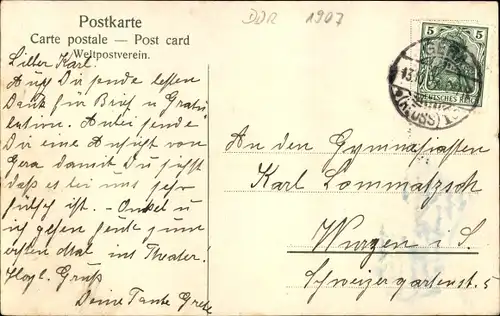 Postkarte
Carte postale — Post card
Weltpostverein.
DDR 1907
5 5
GERA
13.
DEUTSCHES REICH
(REUSS)
Lieber Karl.
Auf Du sende besten
Dank für Brief u Gratu
lation. Anbei sende
Du eine Ansicht von
Gera damit Du siehst
daß es bei uns sehr
hübsch ist. – Onkel u
ich gehen heute zum
ersten Mal ins Theater!
Hzgl. Gruß
Deine Tante Grete
An den Gymnasiasten
Karl Lommatzsch
Wurzen i. S.
Schweizergartenstr. 5